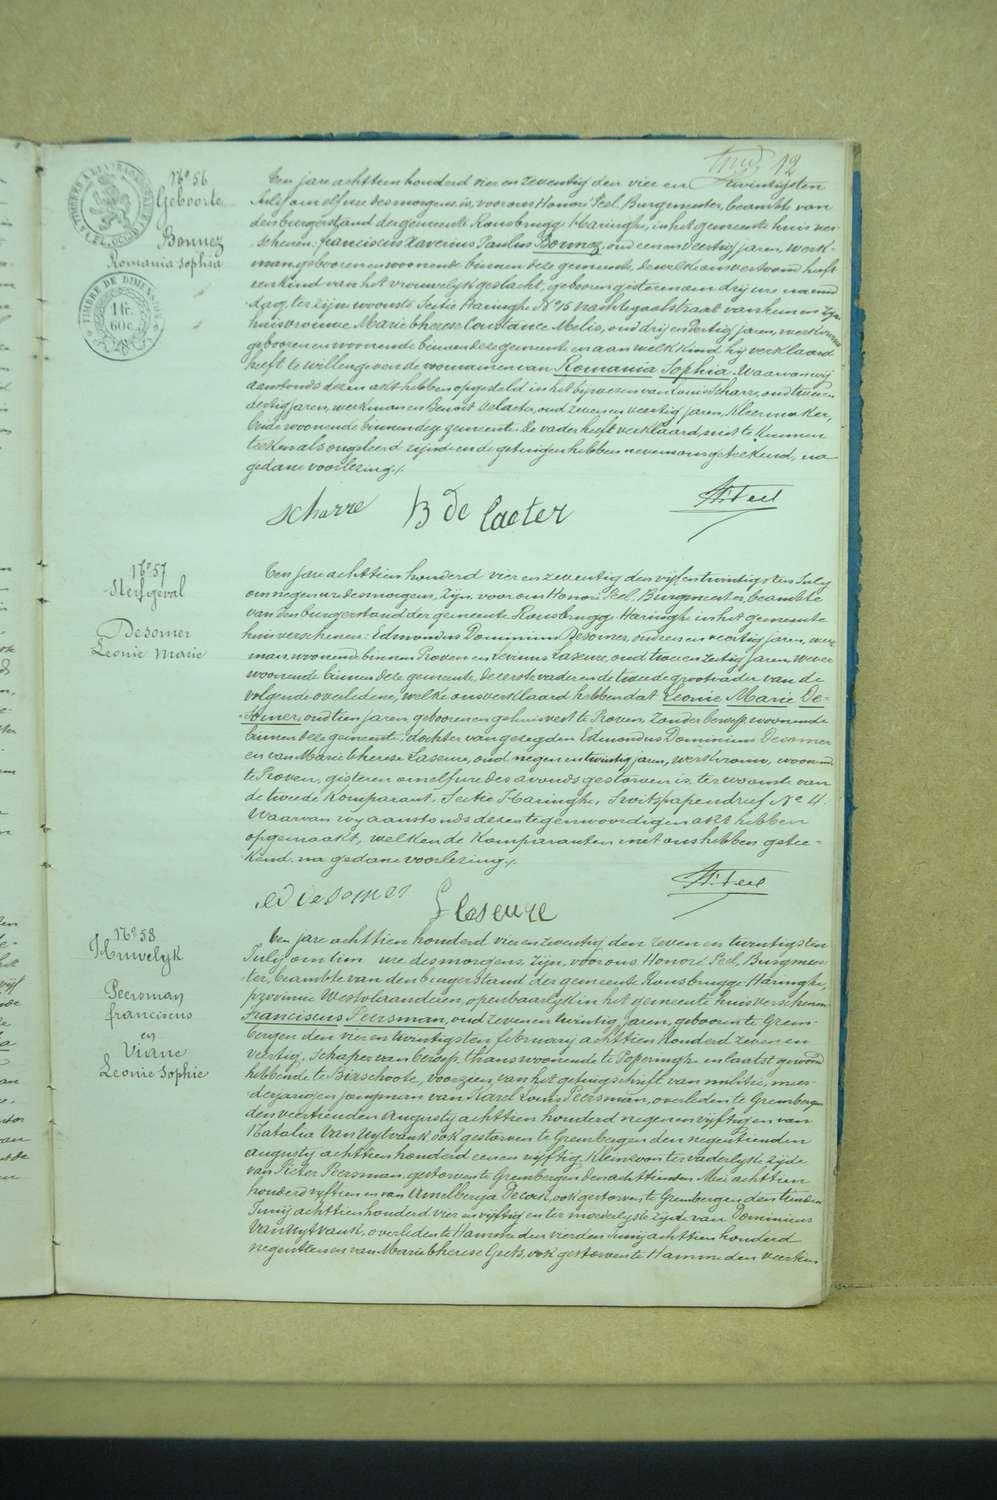 12
N° 56
Geboorte
Bonnez
Romania Sophia
TIMBRE DE DIMENSION
1 fr.
60c.
Ten jare achttien honderd vier en zeventig den vier en twintigsten
July om elf ure des morgens, is, voor ons Honoré Feel, Burgmeester, beambte van
den burgerstand der gemeente Rousbrugge-Haringhe, in het gemeente huis ver-
schenen: franciscus Xaverius Paulus Bonnez, oud een en veertig jaren, werk-
man, geboren en woonende binnen deze gemeente, dewelke ons vertoond heeft
een kind van het vrouwelyk geslacht, geboren gisteren om dry ure namid
dag, ter zyn woonste Sectie Haringhe N° 15 nachtegaalstraat van hem en zyn
huisvrouwe Marie therese Constance Melis, oud dry en dertig jaren, werkvrouw
geboren en woonende binnen deze gemeente en aan welk kind hy verklaard
heeft te willen geven de voornamen van Romania Sophia. Waarvan wy
aanstonds dezen akt hebben opgesteld in het bywezen van Louis Scharre, oud twee en
dertig jaren, werkman en Benoit Delaeter, oud zeven en veertig jaren, Kleermaker,
beide woonende binnen deze gemeente. De vader heeft verklaard niet te kunnen
teeken als ongeleerd zynde en de getuigen hebben nevens ons geteekend, na
gedane voorlezing./.
Scharre B De Laeter H. Feel
N° 57
Sterfgeval
Desomer
Leonie Marie
Ten jare achttien honderd vier en zeventig den vyf en twintigsten July
om negen ure des morgens, zyn voor ons Honoré Feel, Burgmeester, beambte
van den burgerstand der gemeente Rousbrugge-Haringhe in het gemeente
huis verschenen: Edmondus Dominicus Desomer, oud een en veertig jaren, werk
man, woonende binnen Proven en Levinus Laseure, oud twee en zestig jaren, wever
woonende binnen deze gemeente, de eerste vader en de tweede grootvader van de
volgende overledene, welke ons verklaard hebben dat Leonie Marie De-
somer, oud tien jaren, geboren en gehuisvest te Proven, zonder beroep, woonende
binnen deze gemeente, dochter van gezegden Edmondus Dominicus Desomer
en van Marie therese Laseure, oud negen en twintig jaren, werkvrouw, woonende
te Proven, gisteren om elf ure des avonds gestorven is, ter woonste van
de tweede Komparant, Sectie Haringhe, N° 4.
Waarvan wy aanstonds dezen tegenwoordigen akt hebben
opgemaakt, welken de Komparanten met ons hebben getee-
kend na gedane voorlezing./.
ED Desomer L laseure H. Feel
N° 58
Huwelyk
Peersman
franciscus
en
Viane
Leonie Sophie
Ten jare achttien honderd vier en zeventig den zeven en twintigsten
July om tien ure des morgens, zyn, voor ons Honoré Feel, Burgmees-
ter, beambte van den burgerstand der gemeente Rousbrugge-Haringhe,
provincie Westvlaanderen, openbaarlyk in het gemeente huis verschenen
Franciscus Peersman, oud zeven en twintig jaren, geboren te Grem-
bergen den vier en twintigsten february achttien honderd zeven en
veertig, Schaper van beroep, thans woonende te Poperinghe en laatst gewoond
hebbende te Bixschoote, voorzien van het getuigschrift van militie, meer-
derjarigen jongman van Karel Louis Peersman, overleden te Grembergen
den veertienden Augusty achttien honderd negen en vyftig en van
Natalia Van Uytvank, ook gestorven te Grembergen den negentienden
augusty achttien honderd een en vyftig. Kleinzoon ter vaderlyke zyde
van Pieter Peersman, gestorven te Grembergen den achttienden Mei achttien
honderd vyftien en van Amelberga Decock, ook gestorven te Grembergen den tienden
Juny achttien honderd vier en vyftig en ter moederlyke zyde van Dominicus
Van Uytvank, overleden te Hamme den vierden Juny achttien honderd
negentien en van Marie therese Geets, ook gestorven te Hamme den veertien